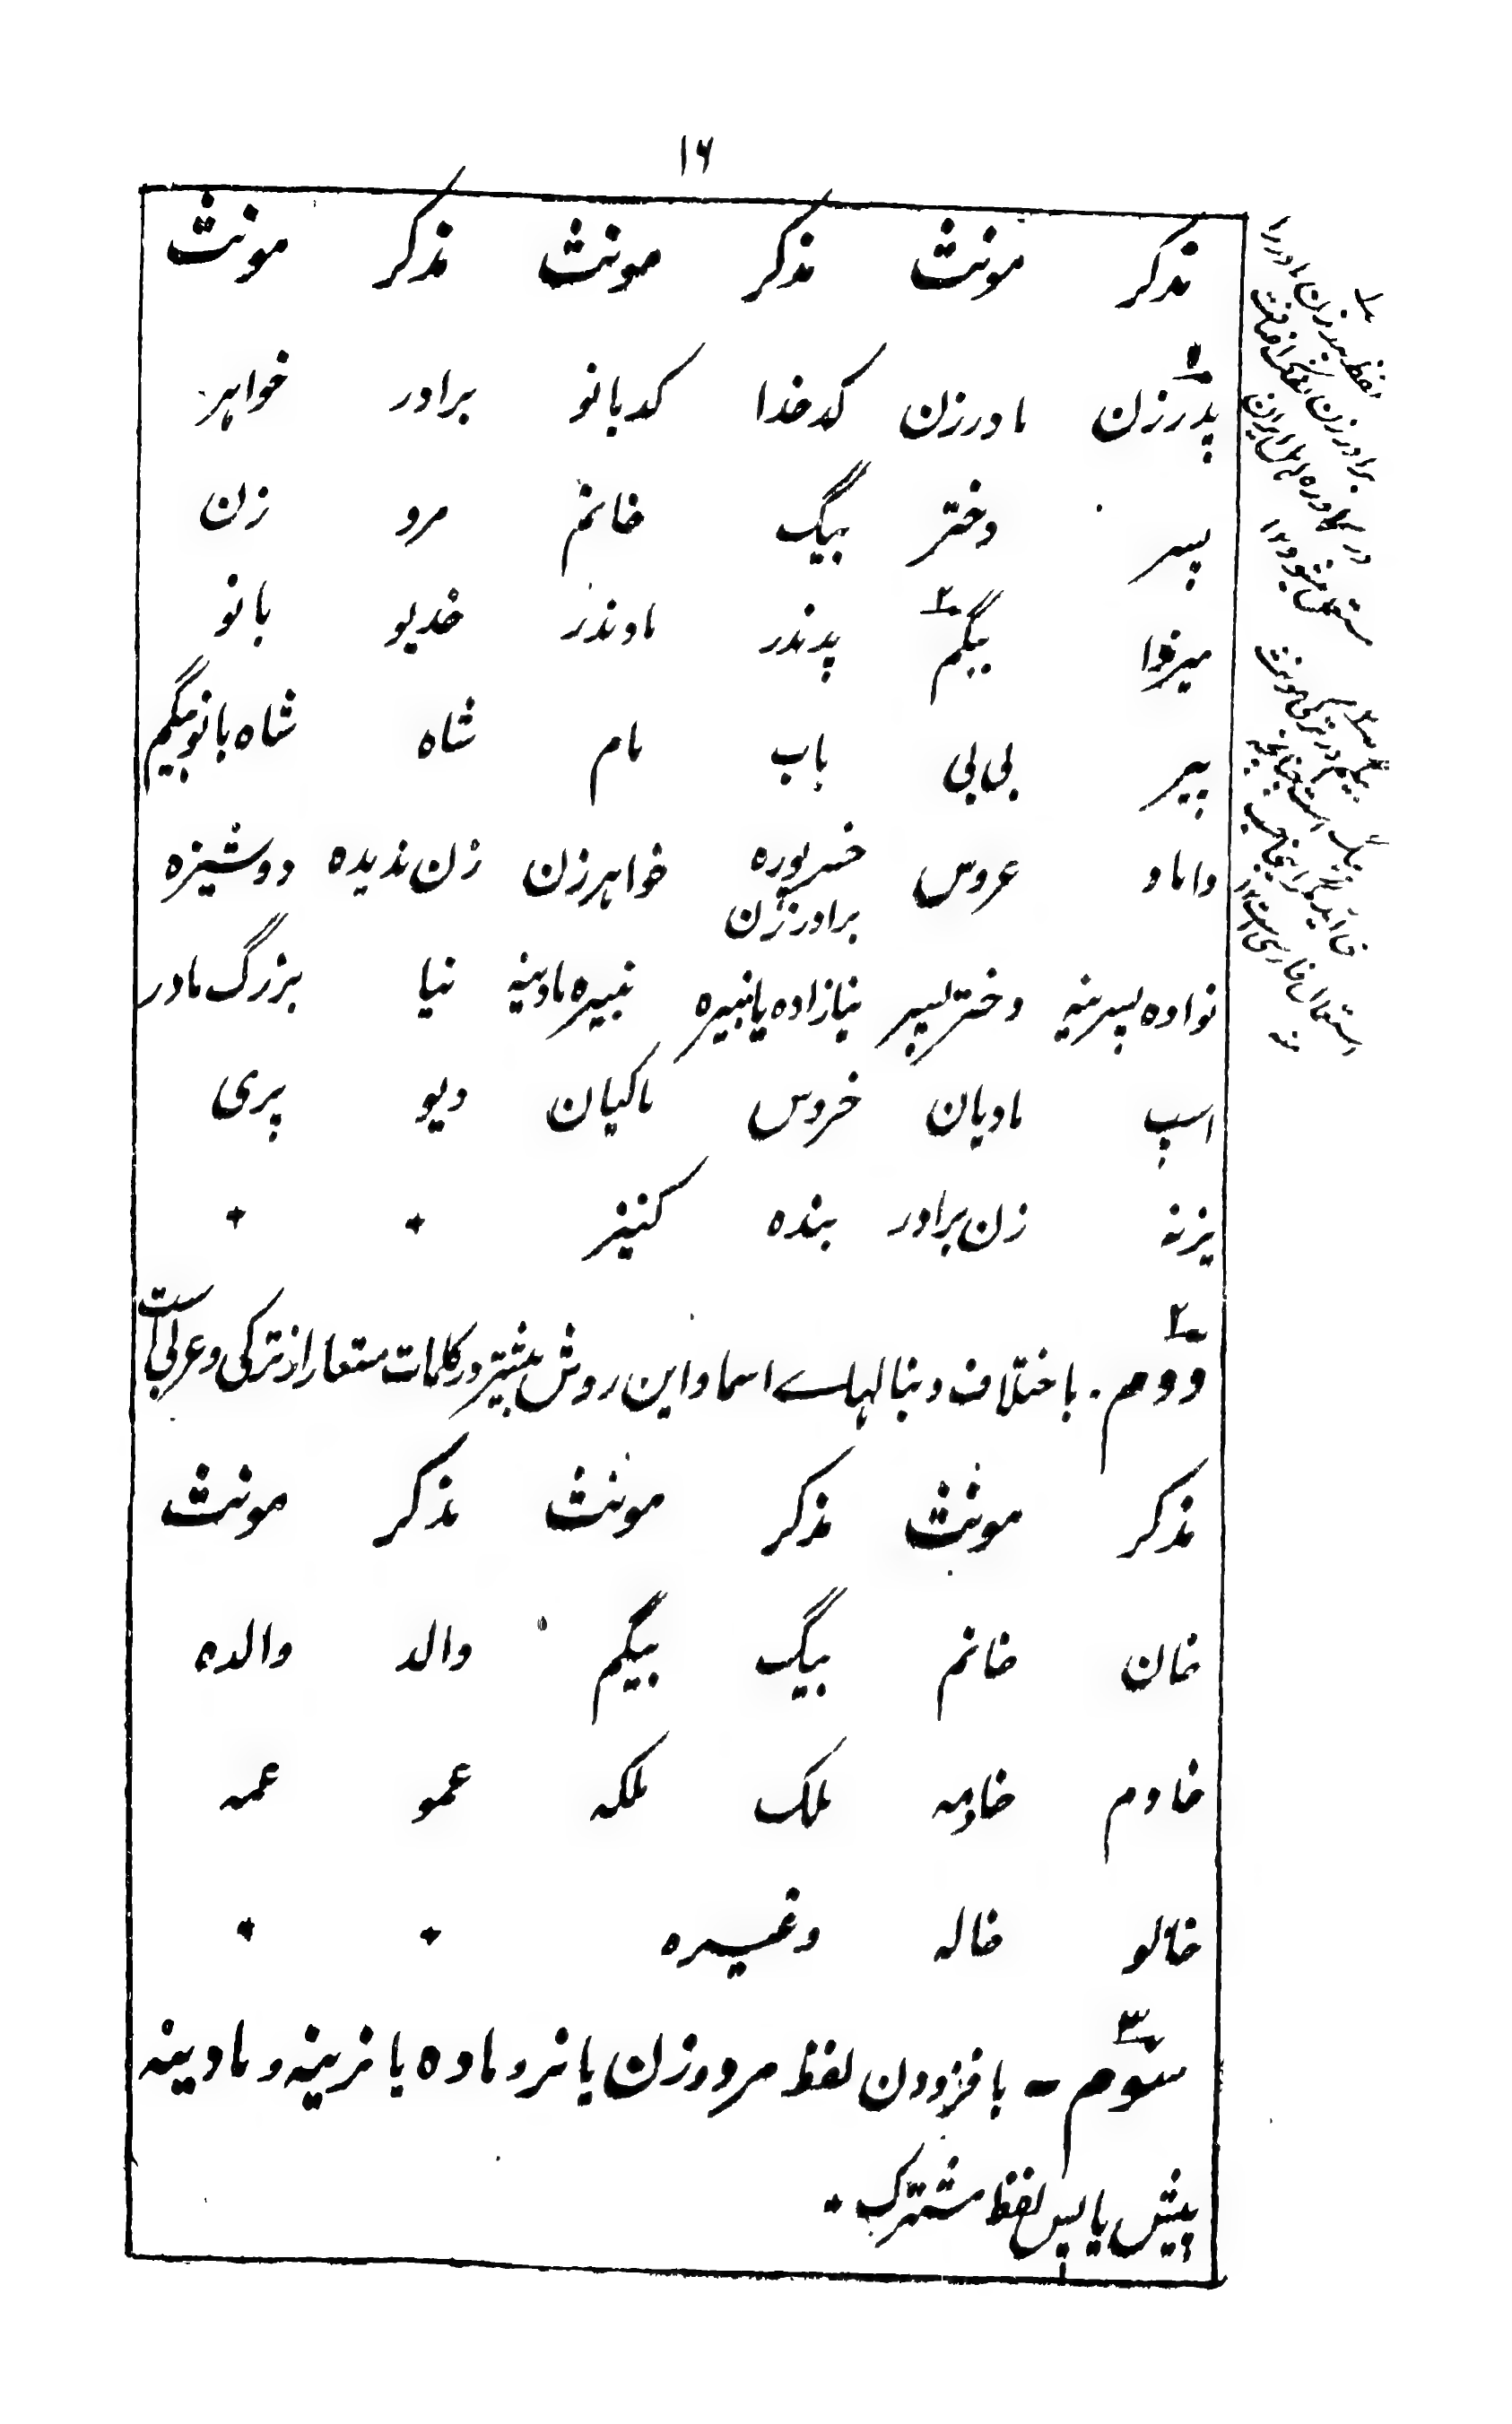 ۱۶
مذکر مونث مذکر مونث مذکر مونث
پدرزن مادرزن کدخدا کدبانو برادر خواہر
پسر دختر بیگ خانم مرد زن
میرزا بیگم پدندر مادندر خدیو بانو
پیر بی بی باب مام شاہ شاہ بانو بیگم
داماد عروس خسرپورہ خواہرزن زن ندیدہ دوشیزہ
برادرزن
نوادہ پسرینہ دخترپسر نیازادہ یا نبیرہ نبیرہ مادینہ نیا بزرگ مادر
اسپ مادیان خروس ماکیان دیو پری
یزنہ زن برادر بندہ کنیز ٭ ٭
۲
دوم ۔ باختلاف دنبالہاے اسما و این روش بیشتر در کلمات مستعار از ترکی و عربی است
مذکر مونث مذکر مونث مذکر مونث
خان خانم بیگ بیگم والد والدہ
خادم خادمہ ملک ملکہ عمو عمہ
خالو خالہ وغیرہ ٭ ٭
۳
سوم ۔ بافزودن لفظ مرد و زن یا نر و مادہ یا نرینہ و مادینہ
پیش یا پس لفظ مشترک ۔